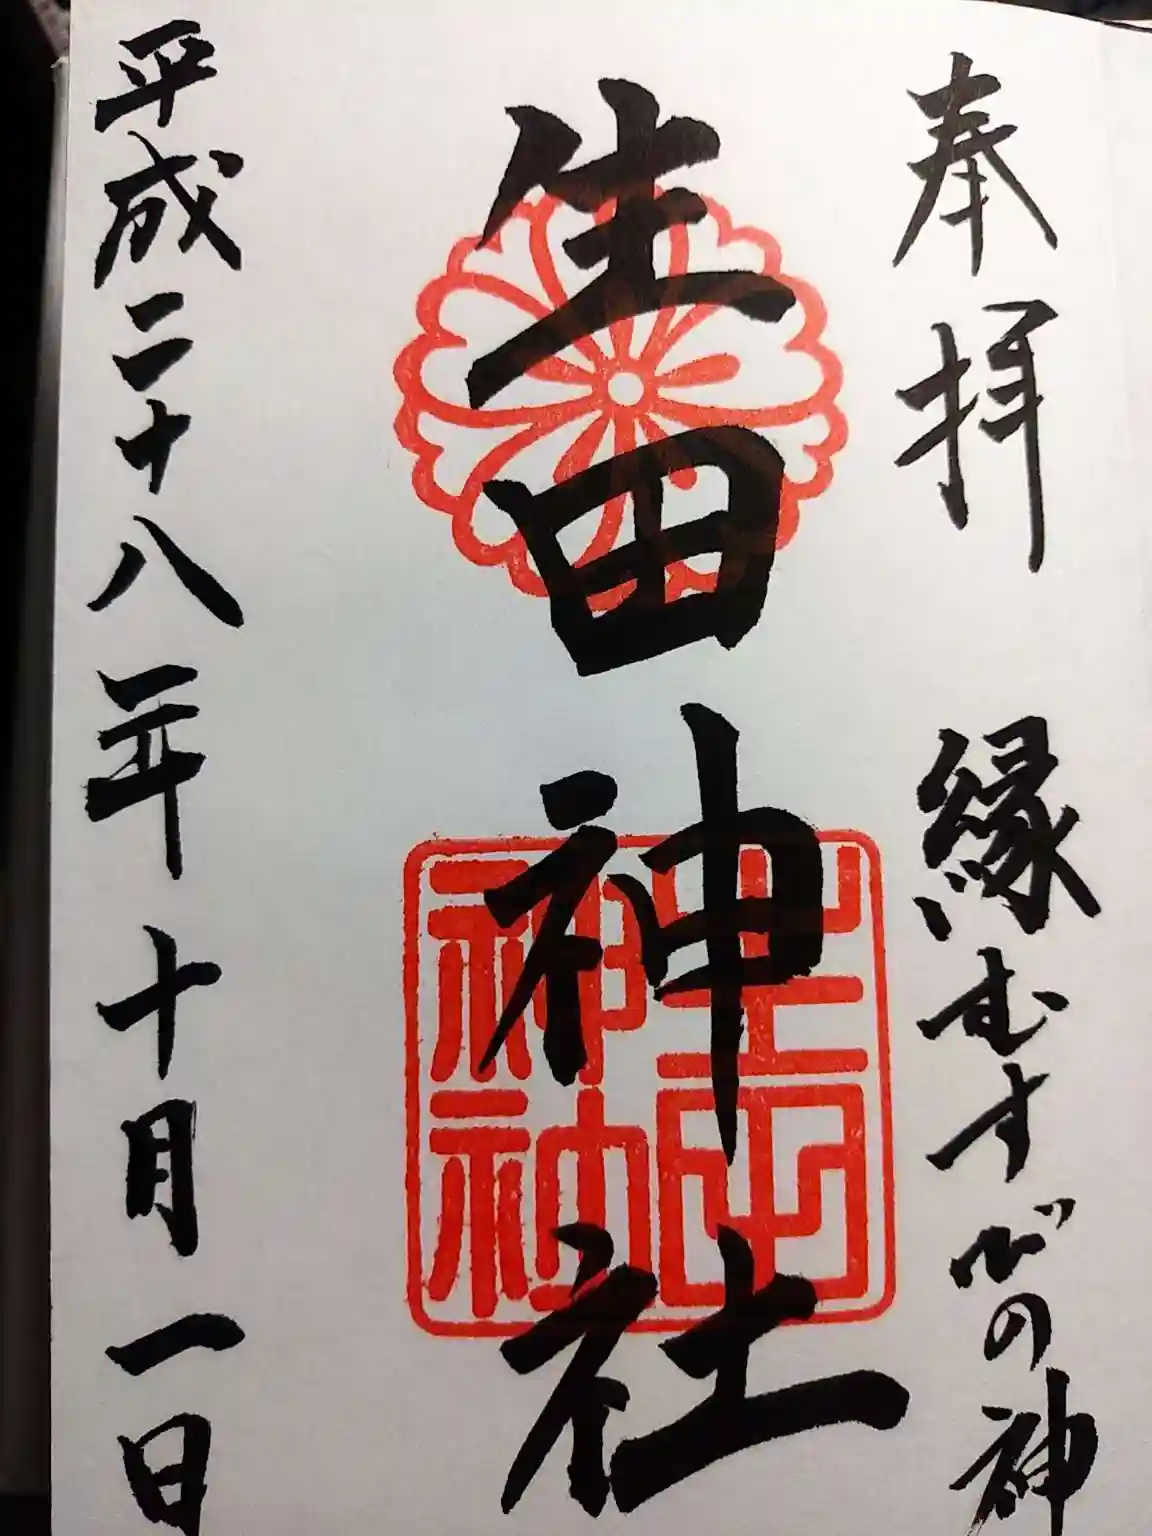 奉拝 縁むすびの神
生田神社
平成二十八年十月一日
生田
神社